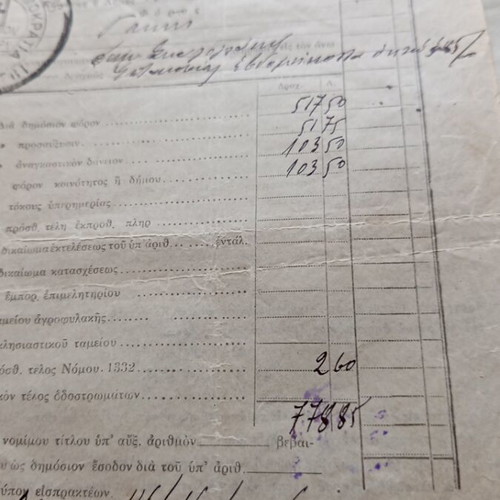 ΚΡΑΤΙΑ
Δραχ. Λ.
διὰ δημόσιον φόρον 517 50
» προσαύξησιν 51 75
» ἀναγκαστικὸν δάνειον 103 50
φόρον κοινότητος ἢ δήμου 103 50
τόκους ὑπερημερίας
προσθ. τέλη ἐκπροθ. πληρ
δικαίωμα ἐκτελέσεως τοῦ ὑπ' ἀριθ. ἐντάλ.
δικαίωμα κατασχέσεως
ἐμπορ. ἐπιμελητηρίου
ταμείου ἀγροφυλακῆς
κλησιαστικοῦ ταμείου
όσθ. τελος Νόμου 1332 2 60
κὸν τέλος ὁδοστρωμάτων
778.85
νομίμου τίτλου ὑπ' αὔξ. ἀριθμὸν βεβαι-
ως δημόσιον ἔσοδον διὰ τοῦ ὑπ' ἀριθ.
τύπου εἰσπρακτέων